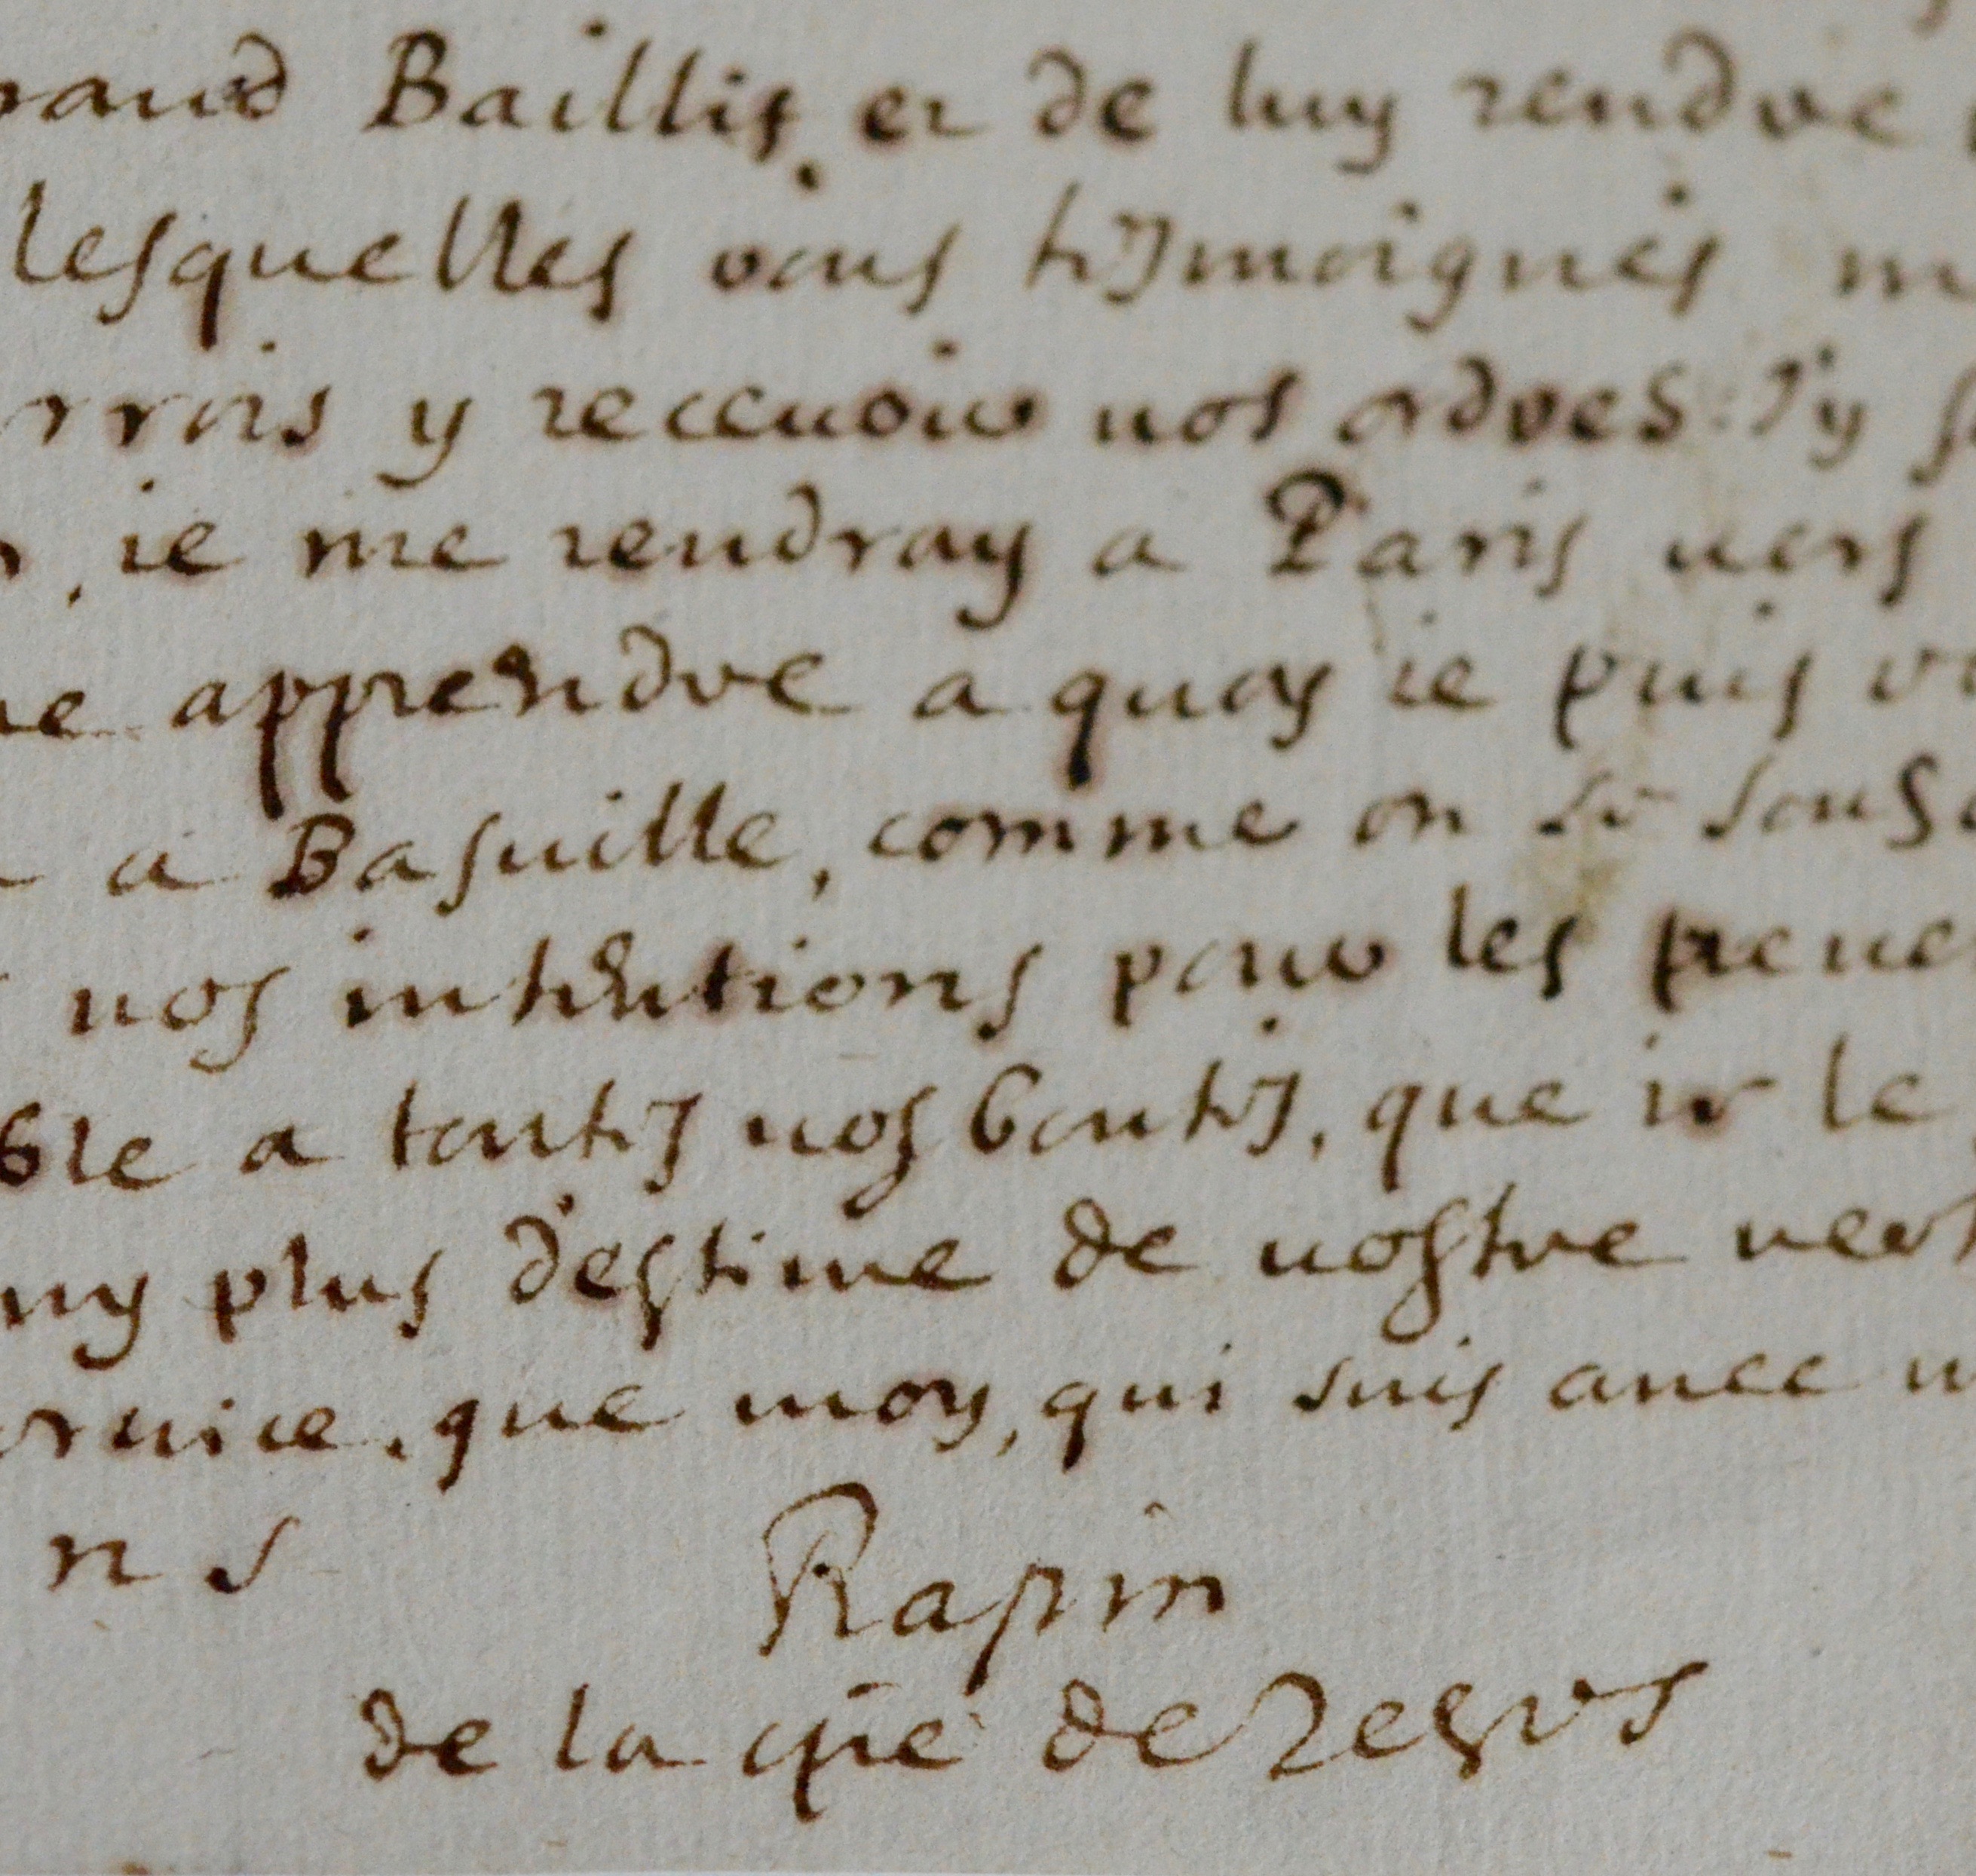 rand Baillis, et de luy rendre
lesquelles vous tesmoignes m
rrois y recevoir vos ordres. J'y
ie me rendray a Paris vers
ue apprendre a quoy ie puis vo
a Basville, comme on se
vos intentions pour les
ble a toutes vos bontes, que ie le
ny plus d'estime de vostre vert
ervice, que moy, qui suis avec
n s
Rapin
de la cñie de Jesus